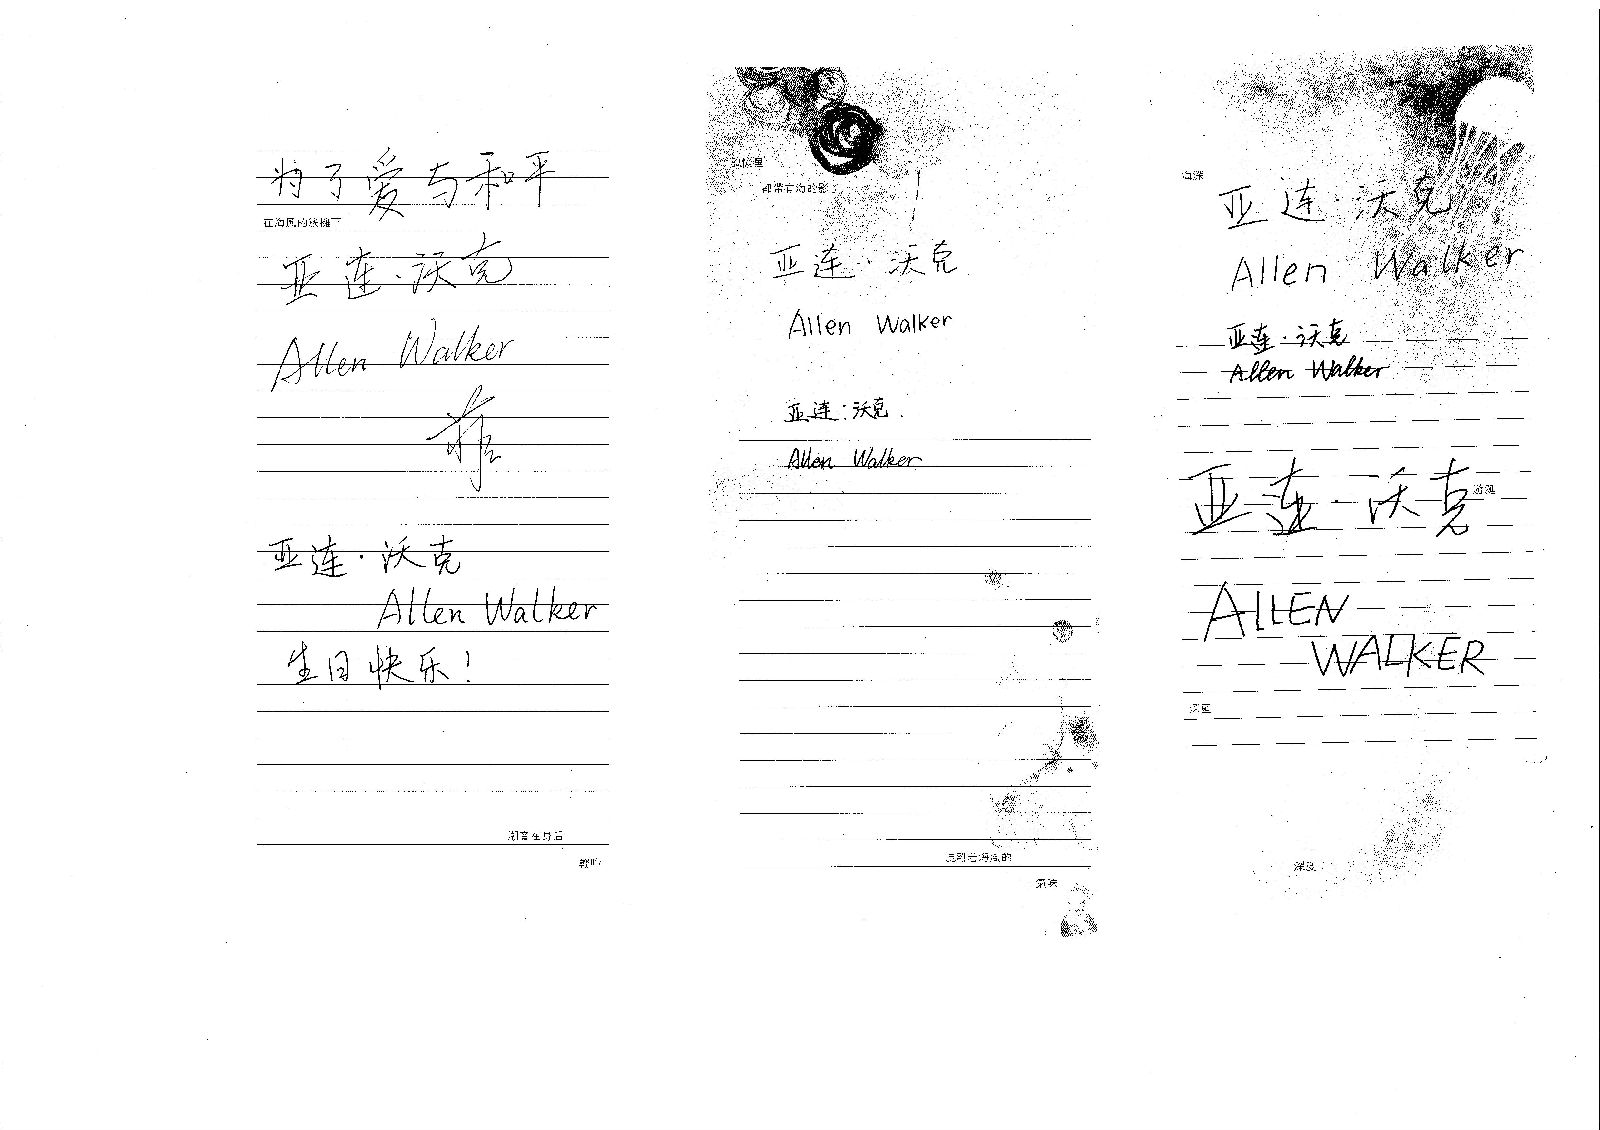 为了爱与和平
在海風的線機下
亚连·沃克
Allen Walker
亚连·沃克
Allen Walker
生日快乐!
潮音在身后
都帶有海的影子
亚连·沃克
Allen Walker
亚连·沃克
Allen Walker
氣味
海深
亚连·沃克
Allen Walker
亚连·沃克
Allen Walker
亚连·沃克
ALLEN
WALKER